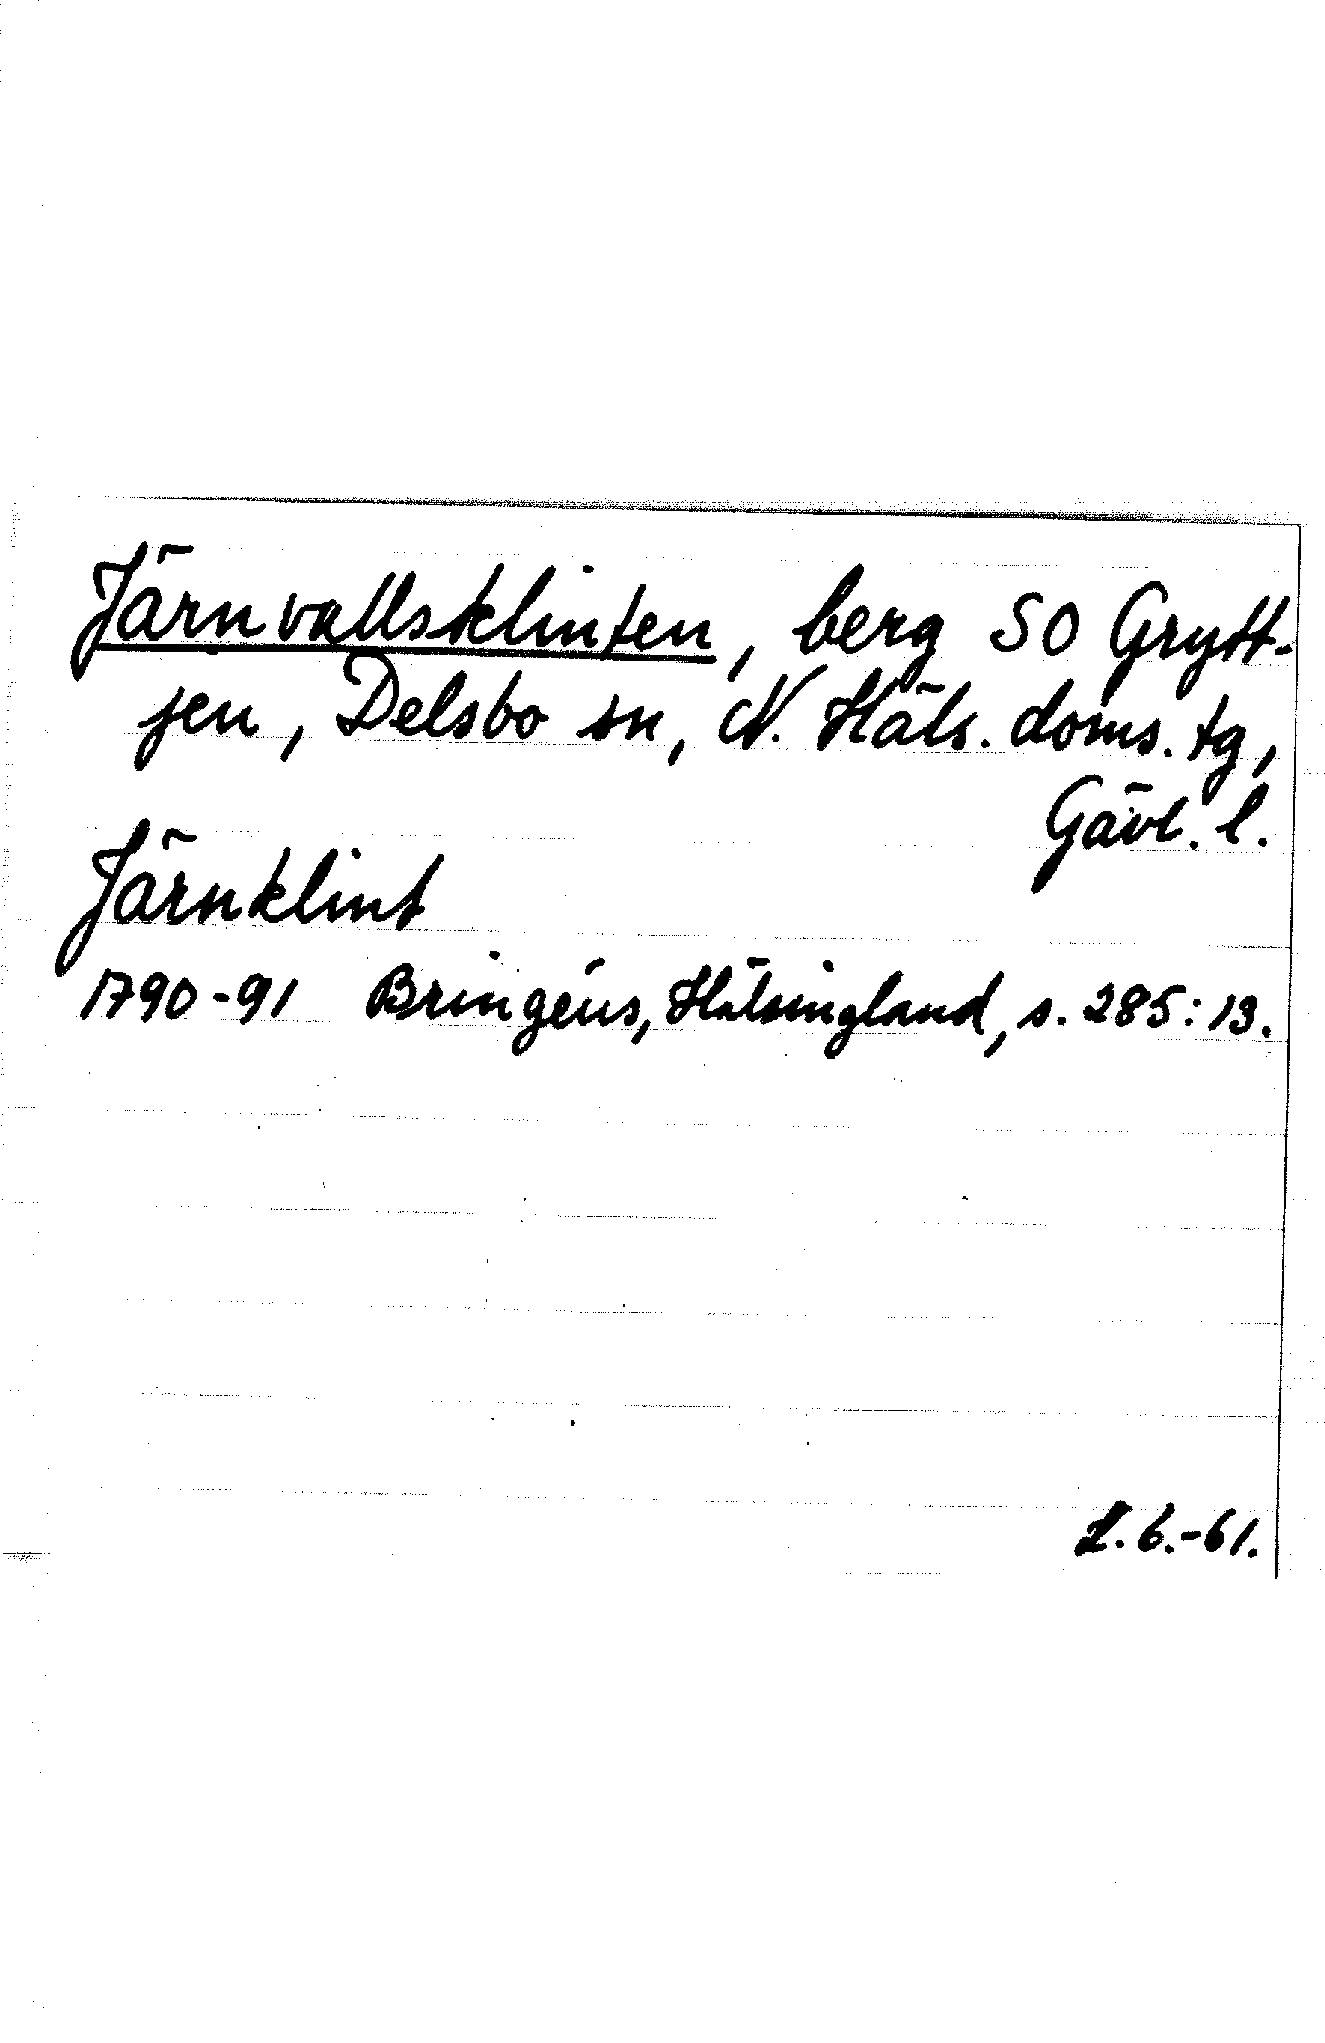 Järnvallsklinten, berg SO Grytt-
jen, Delsbo sn, N. Häls. doms. tg,
Gävl. l.
Järnklint
1790-91 Bringéus, Hälsingland, s. 285:13.
L.6.-61.